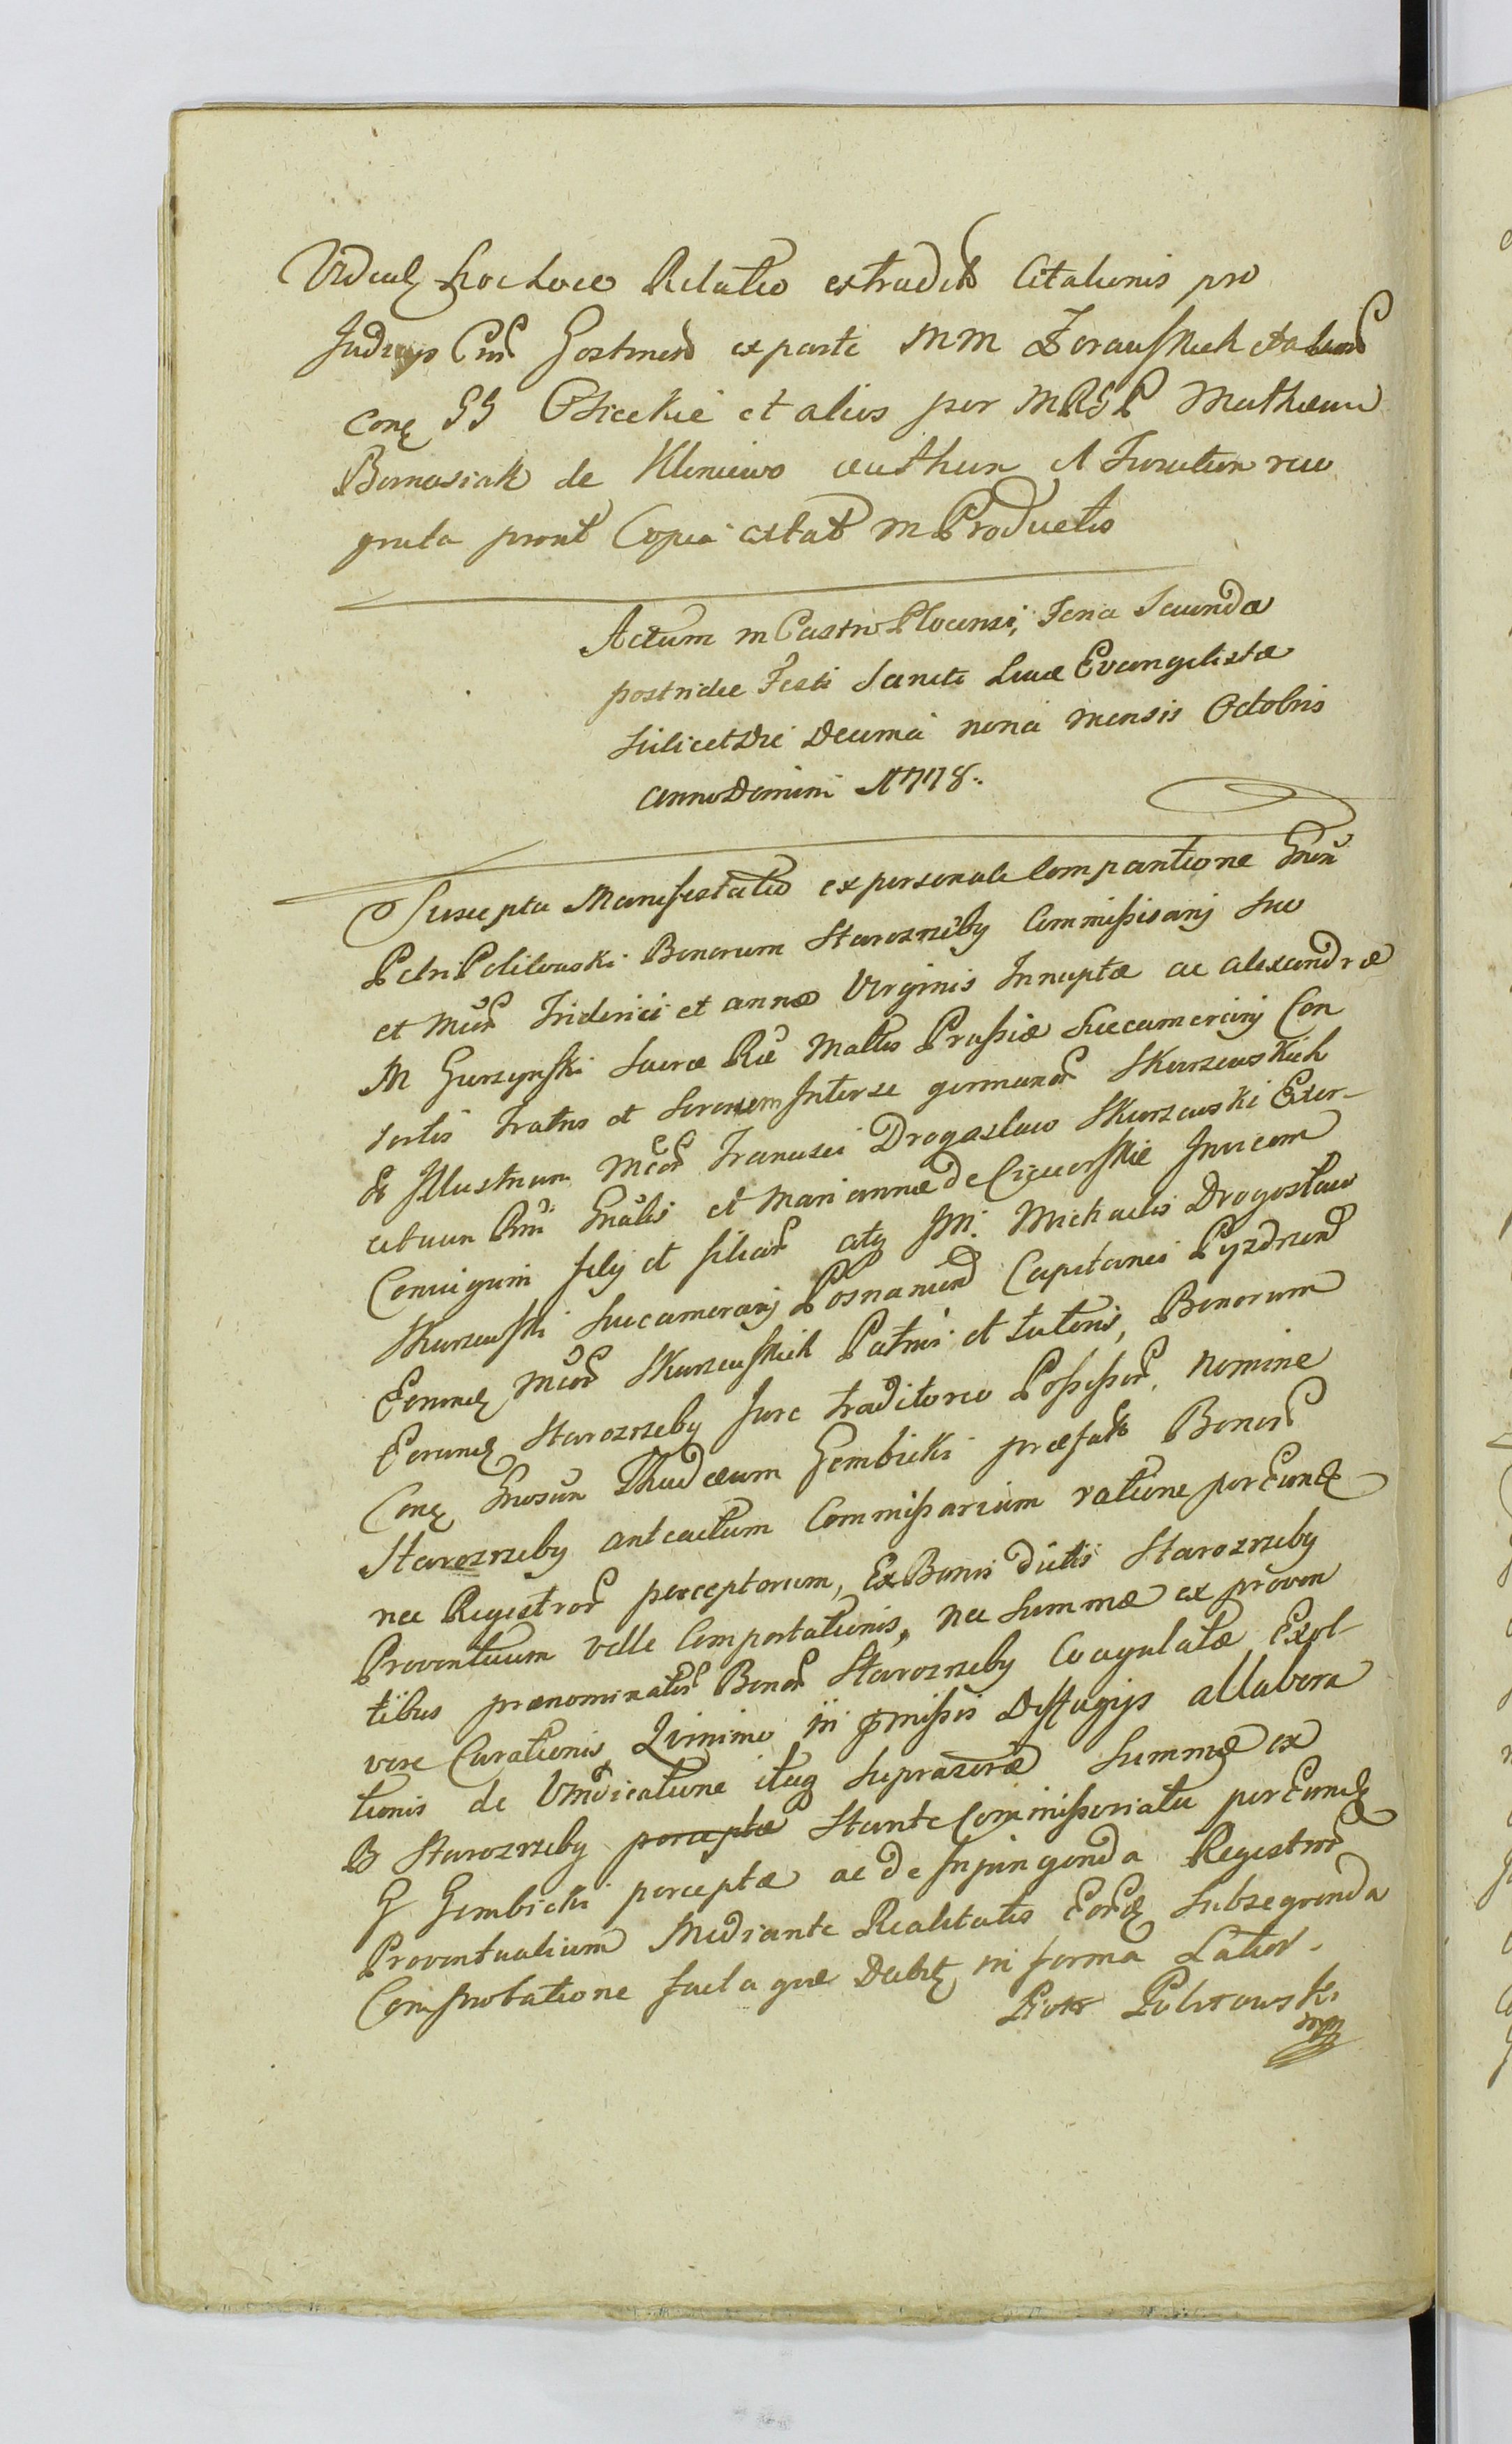 hocloce Relatio extradit Citationis pro
Judicijs ex parte MM et
Conq GG et alios per M R G P Mathaeum
Bernasiak de Kleniewo authen et Juratum reco
gnita prout Copia extat in Productis
Actum in Castro Plocensi, Feria Secunda
postridie Festi Sancti Lucae Evangelistae
Scilicet Die Decima nona mensis Octobris
anno Domini 1778.
Suscepta Manifestatio ex personali Comparitione Gnen
Petri Politowski Bonorum Starozrzeby Commissarij suo
et Mcor Friderici et annae Virginis Innuptae ac alexandrae
M Gurzynski Sacrae Rae Mattis Prussiae Succamerarij Con
sortis Fratris et Sororum Inter se germanor Skorzewskich
et Illustrium Mcor Francisci Drogoslaw Skorzewski Exer-
cituum Rni Gnalis et Mariannae de Invicem
Conuigum filij et filiar atq Mi. Michaelis Drogoslaw
Skorzewski Succamerarij Posnanien Capitanei Pyzdrien
Eorundq Mcor Skorzewskich Patrui et tutoris, Bonorum
Eorundq Starozrzeby Jure traditorio Possessor, Nomine
Conq Gnosum Thadaeum Gembicki praefat Bonor
Starozrzeby anteactum Commissarium ratione per Eundq
nec Regestror perceptorum, Ex Bonis dictis Starozrzeby
Proventuum velle Comportationis, nec Summae ex proven
tibus praenominator Bonor Starozrzeby Coagulatae Exol-
vere Curationis, Quinimo in pmissis Deffugijs allabora
tionis de Vindicatione itaq Suprascrae Summae ex
B Starozrzeby perceptae Stante Commissoriatu per Eundq
G Gembicki perceptae ac de Injungenda Regestror
Proventualium Mediante Realitatis Eordq Subsequenda
Comprobatione facta que Debitq in forma Latior.
Piotr Politowski
mp